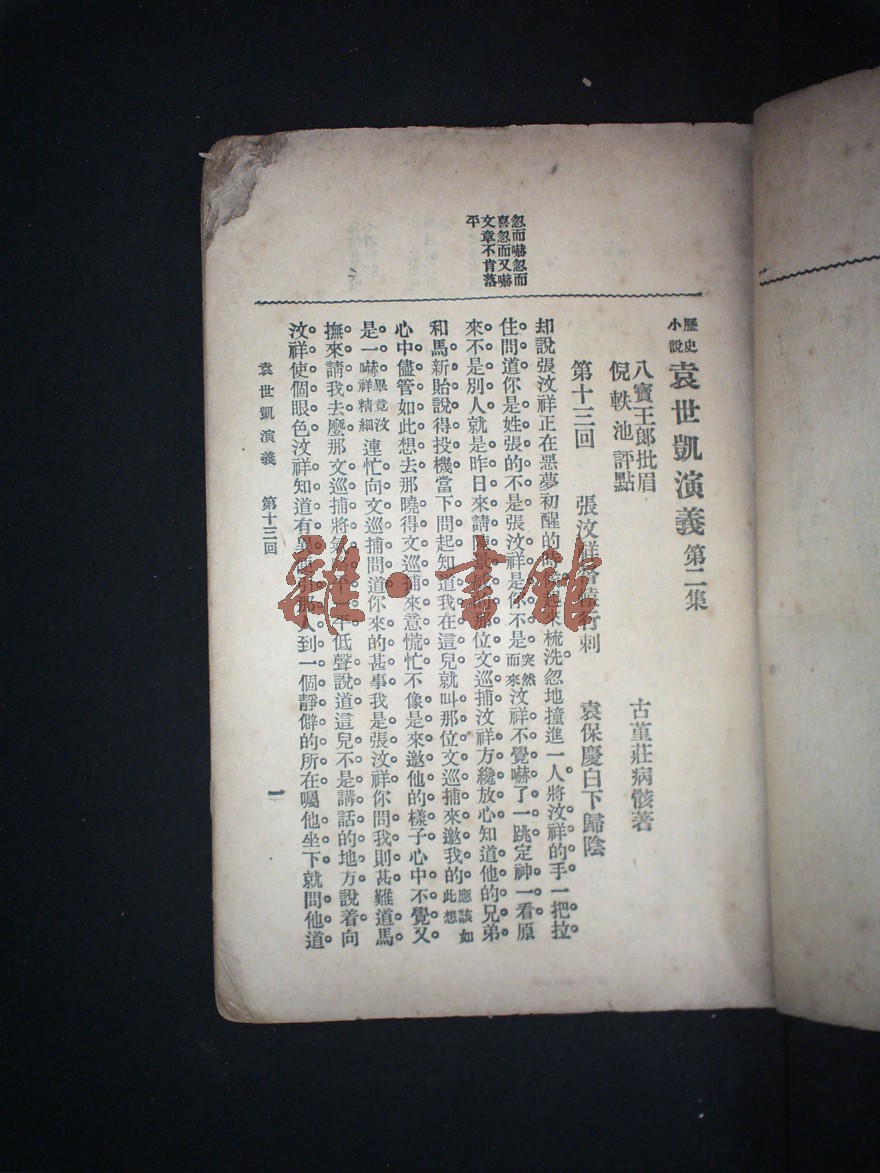 忽而嚇忽而
喜忽而又嚇
文章不肯落
平
歷史
小說
袁世凱演義 第二集
八寶王郎批眉
倪軼池評點
古堇莊病骸著
第十三回 張汶祥 行刺 袁保慶白下歸陰
却說張汶祥正在惡夢初醒的時候起來梳洗忽地撞進一人將汶祥的手一把拉
住問道你是姓張的不是張汶祥是你不是突然而來汶祥不覺嚇了一跳定神一看原
來不是別人就是昨日來請 那位文巡捕汶祥方纔放心知道他的兄弟
和馬新貽說得投機當下問起知道我在這兒就叫那位文巡捕來邀我的應該如此想
心中儘管如此想去那曉得文巡捕來意慌忙不像是來邀他的樣子心中不覺又
是一嚇畢竟汶祥精細連忙向文巡捕問道你來的甚事我是張汶祥你問我則甚難道馬
撫來請我去麼那文巡捕將氣 平低聲說道這兒不是講話的地方說着向
汶祥使個眼色汶祥知道有異 引那人到一個靜僻的所在囑他坐下就問他道
袁世凱演義 第十三回 一
雜·書館